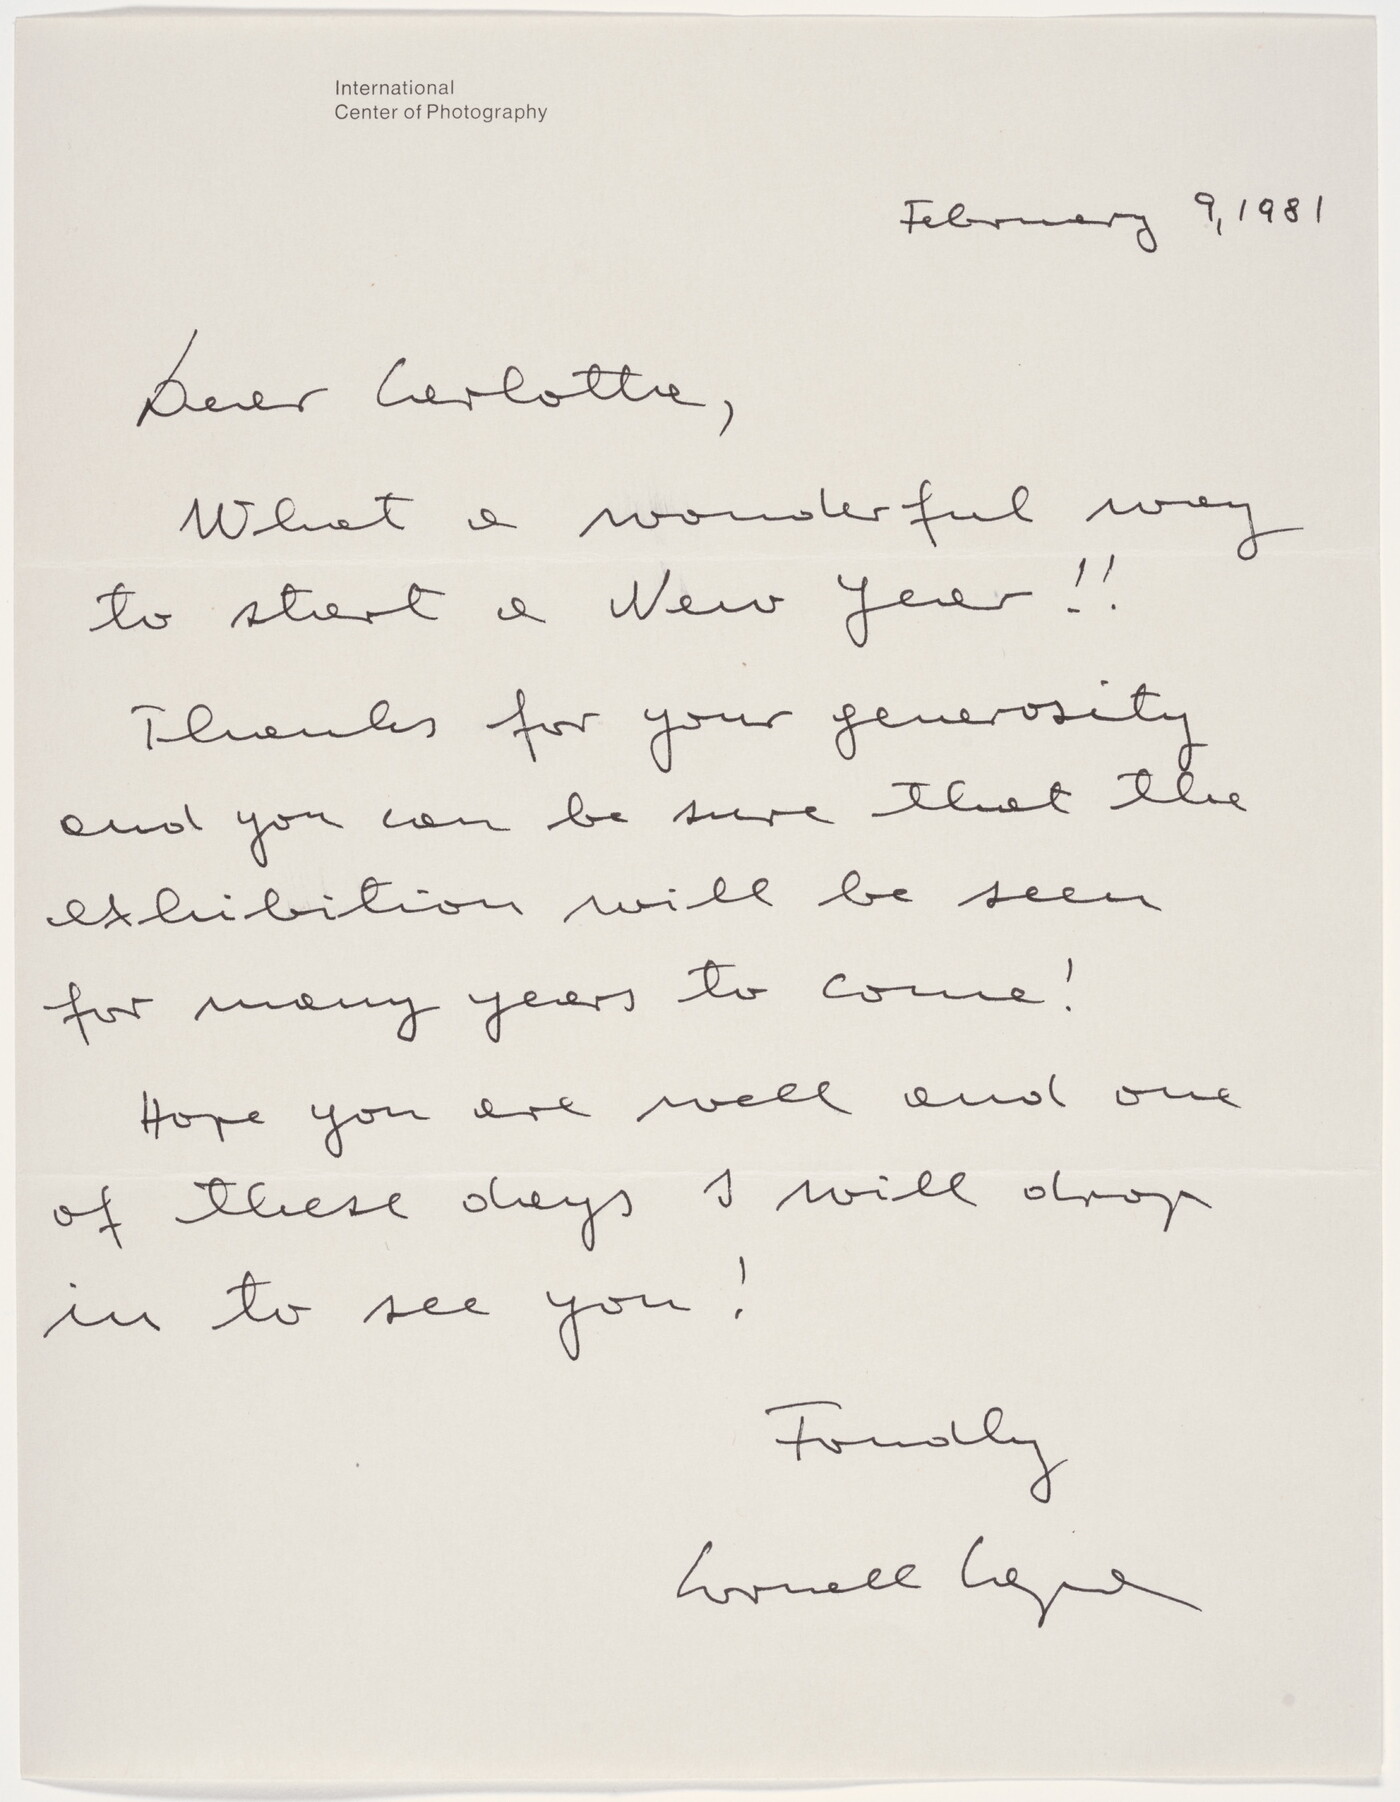 International
Center of Photography
February 9, 1981
Dear Carlotta,
What a wonderful way
to start a New Year!!
Thanks for your generosity
and you can be sure that the
exhibition will be seen
for many years to come!
Hope you are well and one
of these days I will drop
in to see you!
Fondly
Cornell Capa